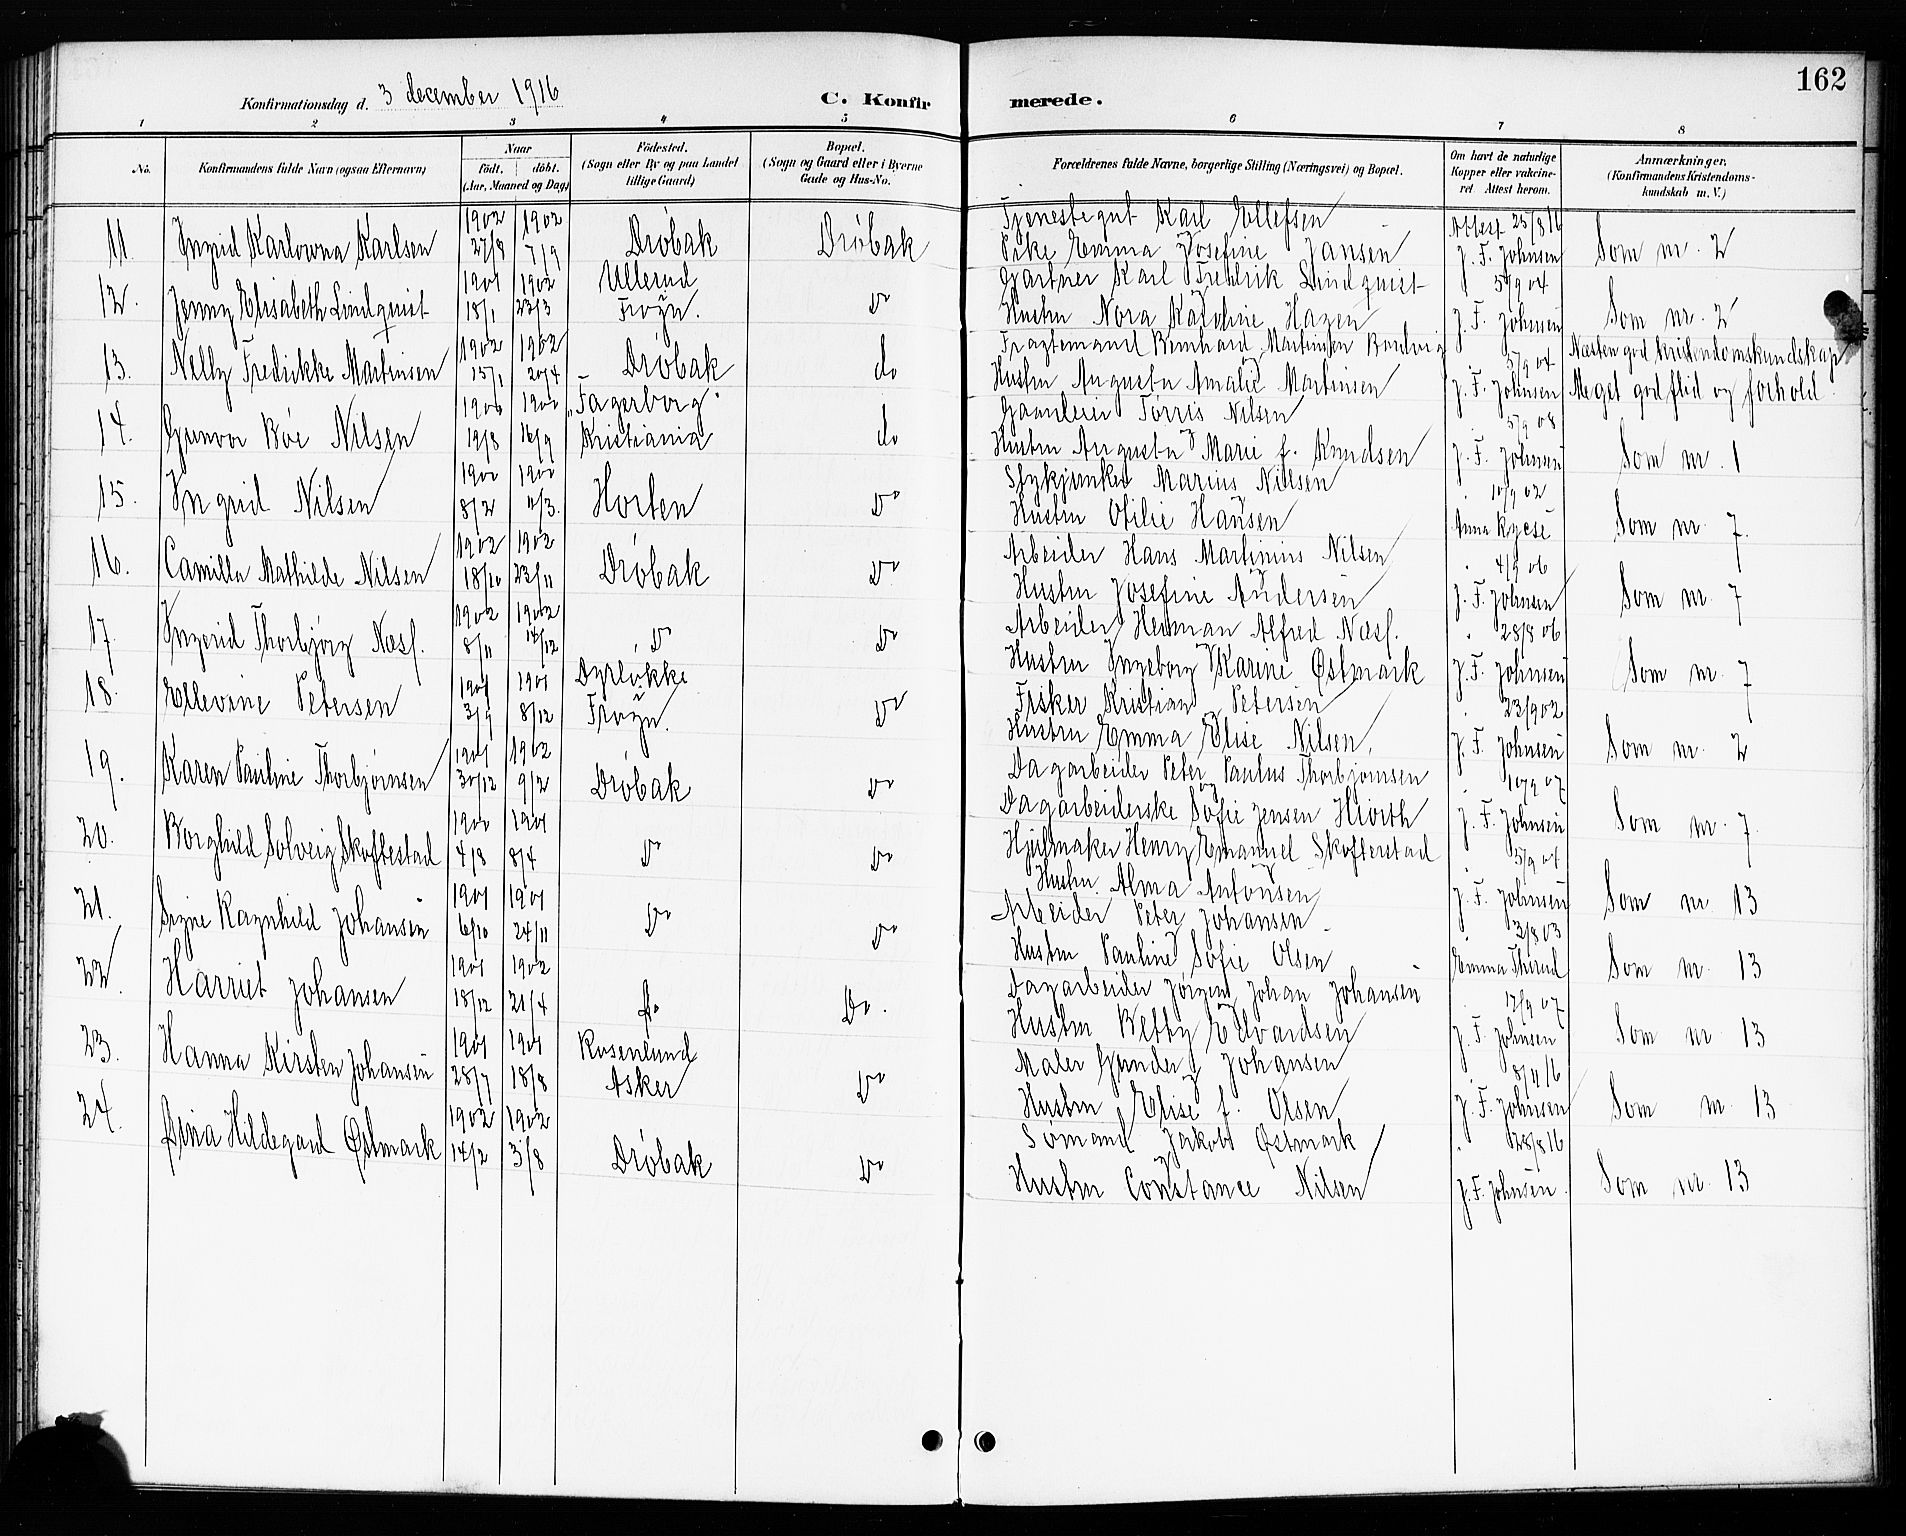 162
Konfirmationsdag d. 3 december 1916
C. Konfirmerede.
1 2 3 4 5 6 7 8
No.
Konfirmandens fulde Navn (ogsaa Efternavn)
Naar født. døbt. (Aar, Maaned og Dag)
Fødested. (Sogn eller By og paa Landet tillige Gaard)
Bopæl. (Sogn og Gaard eller i Byerne Gade og Hus-No.
Forældrenes fulde Navne, borgerlige Stilling (Næringsvei) og Bopæl.
Om havt de naturlige Kopper eller vakcineret Attest herom.
Anmærkninger. (Konfirmandens Kristendomskundskab m. V.)
11. Ingrid Karlowna Karlsen 1902 27/8 1902 7/9 Drøbak Drøbak
Tjenestegut Karl Ellefsen
Pike Emma Josefine Jansen
Attest 25/8 16 J. F. Johnsen Som nr. 2
12. Jenny Elisabeth Lindquist 1901 18/1 1902 23/3 Ullerud Frogn. Do
Gartner Karl Fredrik Lindquist
Hustru Nora Karoline Hagen
5/9 04 J. F. Johnsen Som nr. 2
13. Nelly Fredrikke Martinsen 1902 15/1 1902 20/4 Drøbak do
Fragtemand Bernhard Martinsen
Hustru Augusta Amalie Martinsen
3/9 04 J. F. Johnsen Næsten god kristendomskundskap Meget god flid og forhold.
14. Gunvor Bøe Nilsen 1900 19/8 1900 16/9 "Fagerborg" Kristiania do
Torris Nilsen
Hustru Augusta Marie f. Knudsen
5/9 08 J. F. Johnsen Som nr. 1
15. Ingrid Nilsen 1900 8/2 1900 11/3. Horten Do
Marius Nilsen
Hustru Otilie Hansen
10/9 02 Anna Som nr 7.
16. Camilla Mathilde Nilsen 1902 18/10 1902 23/11 Drøbak Do
Arbeider Hans Martinius Nilsen
Hustru Josefine Andersen
4/9 06 J. F. Johnsen Som nr. 7
17. Ingerid Thorbjørg Næss. 1902 8/11 1902 14/12 Do Do
Arbeider Herman Alfred Næss.
Hustru Ingeborg Karine Østmark
28/8 06 J. F. Johnsen Som nr. 7
18. Ellevine Petersen 1901 3/9 1901 8/12 Dyrløkke Frogn. Do
Fisker Kristian Petersen
Hustru Emma Elise Nilsen,
23/9 02 J. F. Johnsen Som nr. 2
19. Karen Pauline Thorbjørnsen 1901 30/12 1902 9/2 Drøbak Do
Dagarbeider Peter Paulus Thorbjørnsen
og
Dagarbeiderske Sofie Jensen Hiorth
10/9 07 J. F. Johnsen Som nr. 7.
20. Borghild Solveig Skoftestad 1900 4/8 1901 8/4 Do Do
Hjulmaker Henry Emanuel Skofterstad
Hustru. Alma Antonsen
5/9 01 J. F. Johnsen Som nr. 13
21. Signe Ragnhild Johansen 1901 6/10 1901 24/11 Do Do
Arbeider Peter Johansen
Hustru Pauline Sofie Olsen
3/8 03 Emma Som nr. 13
22. Harriet Johansen 1901 18/12 1902 21/4 Do Do.
Dagarbeider Jørgen Johan Johansen
Hustru Betty Edvardsen
12/9 07 J. F. Johnsen Som nr. 13
23. Hanna Kirsten Johansen 1901 28/7 1901 18/8 Rosenlund Asker Do
Maler Gunder Johansen
Hustru Elise f. Olsen
8/9 16 J. F. Johnsen Som nr. 13
24. Hildegard Østmark 1902 14/2 1902 3/8 Drøbak Do
Sømand Jakob Østmark
Hustru Constance Nilsen
28/8 16 J. F. Johnsen. Som nr. 13